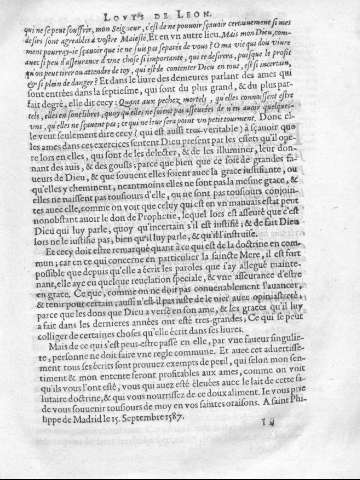 LOVYS DE LEON.
qui ne se peut souffrir, mon Seigneur, c'est de ne pouuoir sçauoir certainement si mes
desirs sont agreables à vostre Maiesté. Et en vn autre lieu. Mais mon Dieu, com-
ment pourray-ie sçauoir que ie ne suis pas separée de vous? O ma vie qui dois viure
auec si peu d'asseurance d'vne chose si importante, qui te desirera, puisque le profit
qu'on peut tirer ou attendre de toy, qui est de contenter Dieu en tout, est si incertain,
& si plein de danger? Et dans le liure des demeures parlant des ames qui
sont entrées dans la septiesme, qui sont du plus grand, & du plus par-
fait degré, elle dit cecy: Quant aux pechez mortels, qu'elles connoissent estre
tels, elles en sont libres, quoy qu'elles ne soient pas asseurées de n'en auoir quelques-
vns, qu'elles ne sçauent pas; ce qui ne leur sera point vn petit tourment. Donc el-
le veut seulement dire cecy (qui est aussi tres-veritable) à sçauoir que
les ames dans ces exercices sentent Dieu present par les effets qu'il ope-
re lors en elles, qui sont de les delecter, & de les illuminer, leur don-
nant des auis, & des gousts; parce que bien que ce soit de grandes fa-
ueurs de Dieu, & que souuent elles soient auec la grace iustifiante, ou
qu'elles y cheminent, neantmoins elles ne sont pas la mesme grace, &
elles ne naissent pas tousiours d'elle, ou ne sont pas tousiours conjoin-
tes auec elle, comme on voit que celuy qui est en vn mauuais estat peut
nonobstant auoir le don de Prophetie, lequel lors est asseuré que c'est
Dieu qui luy parle, quoy qu'incertain s'il est iustifié; & de fait Dieu
lors ne le iustifie pas, bien qu'il luy parle, & qu'il l'instruise.
Et cecy doit estre remarqué quant à ce qui est de la doctrine en com-
mun; car en ce qui concerne en particulier la saincte Mere, il est fort
possible que depuis qu'elle a écrit les paroles que i'ay allegué mainte-
nant, elle aye eu quelque reuelation speciale, & vne asseurance d'estre
en grace. Ce que, comme on ne doit pas conuenablement l'auancer,
& tenir pour certain; aussi n'est-il pas iuste de le nier auec opiniastreté;
parce que les dons que Dieu a versé en son ame, & les graces qu'il luy
a fait dans les dernieres années ont esté tres-grandes; Ce qui se peut
colliger de certaines choses qu'elle écrit dans ses liures.
Mais de ce qui s'est peut-estre passé en elle, par vne faueur singulie-
re, personne ne doit faire vne regle commune. Et auec cet aduertisse-
ment tous ses écrits sont prouuez exempts de peril, qui selon mon sen-
timent & mon entente seront profitables aux ames, comme on voit
qu'ils vous l'ont esté, vous qui auez esté éleuées auec le lait de cette sa-
lutaire doctrine, & qui vous nourrissez de ce doux aliment. Ie vous prie
de vous souuenir tousiours de moy en vos saintes oraisons. A saint Phi-
lippe de Madrid le 15. Septembre 1587.